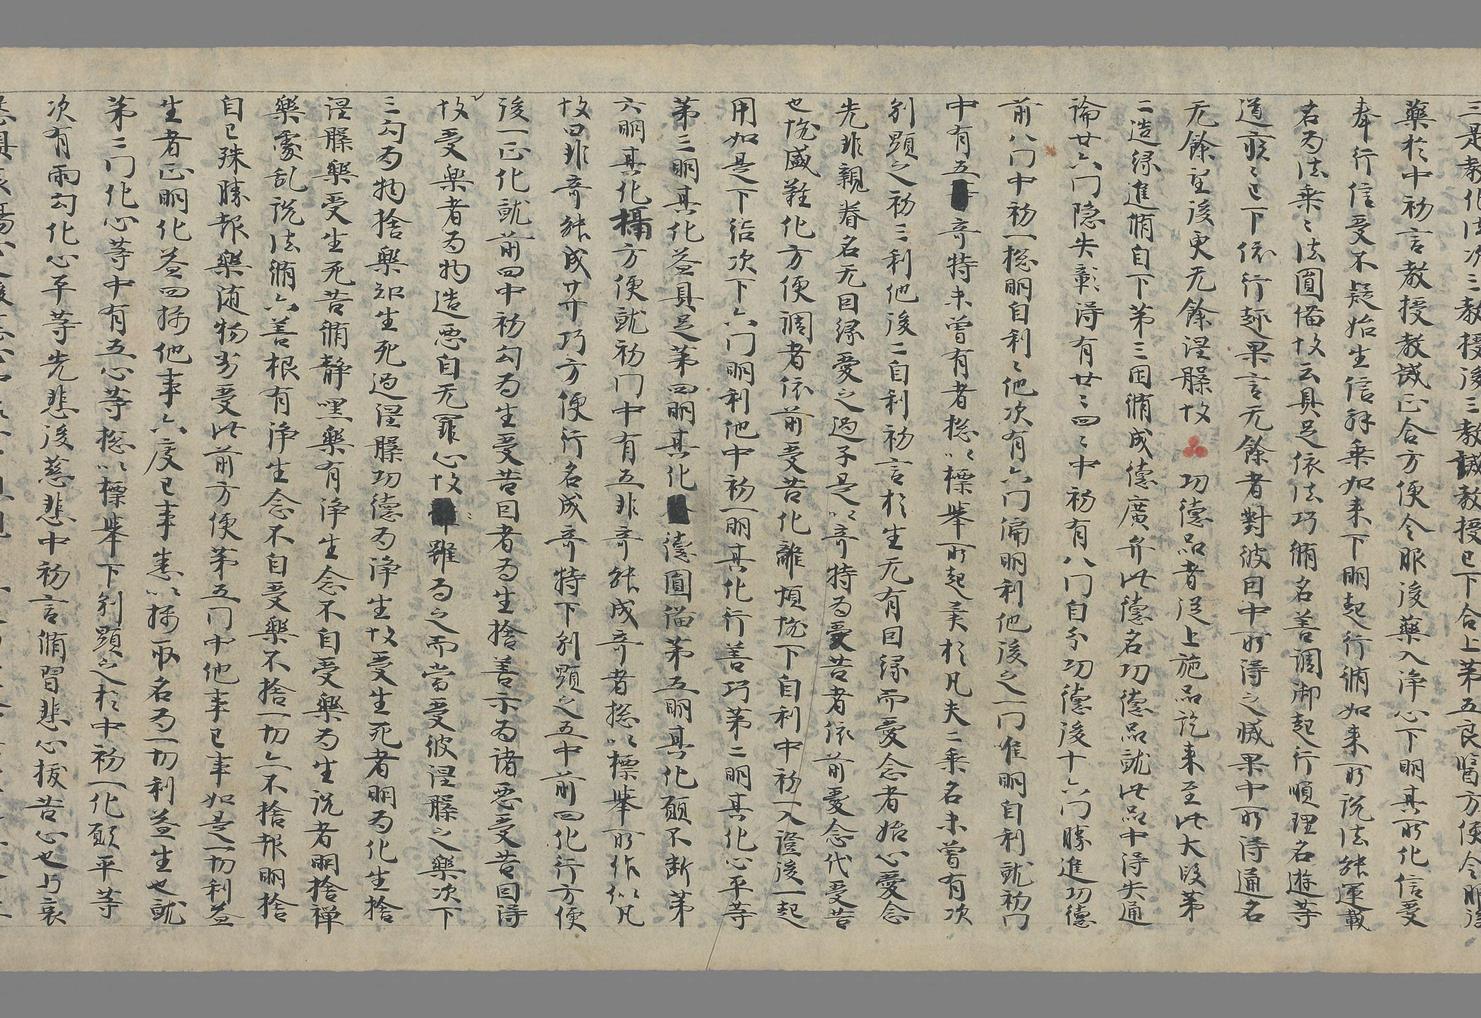 藥於中初言教授教誡正合方便令服後藥入淨心下明其所化信受
奉行信受不疑始生信解乘如来下明起行脩如来所說法能運載
名為法乘乘法圓備故云具足依法巧脩名善調御起行順理名遊等
道疲疲已下依行趣果言无餘者對彼因中所得之滅果中所得通名
无餘望後更无餘涅槃故 功德品者從上施品訖来至此大段第
二造緣進脩自下第三因脩成德廣弁此德名功德品就此品中得失通
論廿六門隱失彰得有廿二四二中初有八門自分功德後十六門勝進功德
前八門中初一揔明自利利他次有六門偏明利他後之一門唯明自利就初門
中有五奇特未曾有者揔以標舉所起美於凡夫二乘名未曾有次
別顯之初三利他後二自利初言於生无有因緣而愛念者始心愛念
先非親眷名无因緣愛之過子是以奇特為受苦者依前愛念代受苦
也恼盛難化方便調者依前受苦化離煩恼下自利中初入證後一起
用如是下結次下六門明利他中初一明其化行善巧第二明其化心平等
第三明其化益具足第四明其化德圓備第五明其化願不断第
六明其化方便就初門中有五非奇能成奇者揔以標舉所作似凡
故曰非奇能成弁巧方便行名成奇特下別顯之五中前四化行方便
後一正化就前四中初句為生受苦因者為生捨善示為諸惡受苦因得
故受樂者為物造惡自无罪心故雖為之而當受彼涅槃之樂次下
三句為物捨樂知生死過涅槃功德為淨生故受生死者明為化生捨
涅槃樂受生死苦脩靜嘿樂有淨生念不自受樂為生說者明捨禅
樂處乱說法脩六善根有淨生念不自受樂不捨一切亦不捨報明捨
自已殊勝報樂随物劣受此前方便第五門中他事已事如是一切利益
生者正明化益四攝他事六度已事悉以攝取名為一切利益生也就
第二門化心等中有五心等揔以標舉下別顯之於中初一化願平等
次有兩句化心平等先悲後慈悲中初言脩習悲心拔苦心也与哀